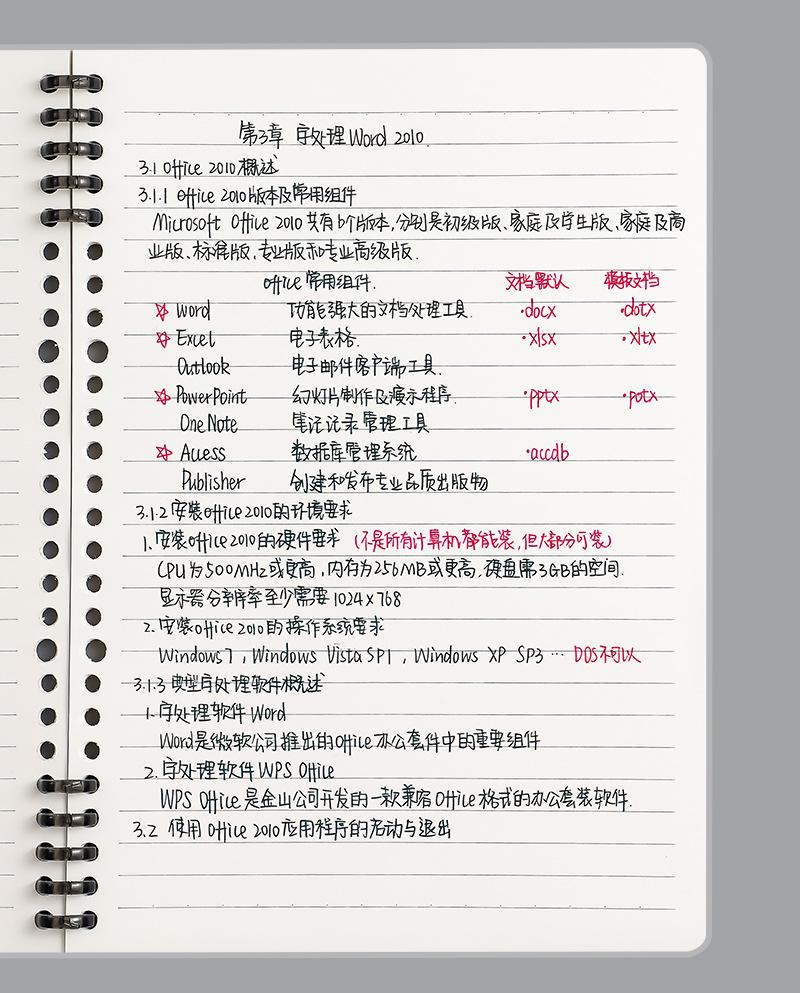 第3章 字处理Word 2010.
3.1 Office 2010概述
3.1.1 Office 2010版本及常用组件
Microsoft Office 2010 共有6个版本,分别是初级版、家庭及学生版、家庭及商
业版、标准版、专业版和专业高级版.
Office 常用组件. 文档默认 模板文档
☆ Word 功能强大的文档处理工具. ·docx ·dotx
☆ Excel 电子表格. ·xlsx ·xltx
Outlook 电子邮件客户端工具.
☆ PowerPoint 幻灯片制作及演示程序. ·pptx ·potx
OneNote 笔记记录管理工具
☆ Access 数据库管理系统 ·accdb
Publisher 创建和发布专业品质出版物
3.1.2 安装Office 2010的环境要求
1. 安装Office 2010的硬件要求 (不是所有计算机都能装,但大部分可装)
CPU为500MHz或更高,内存为256MB或更高,硬盘需3GB的空间.
显示器分辨率至少需要1024×768
2. 安装Office 2010的操作系统要求
Windows7,Windows Vista SP1,Windows XP SP3 … DOS不可以
3.1.3 典型字处理软件概述
1. 字处理软件Word
Word是微软公司推出的Office办公套件中的重要组件
2. 字处理软件WPS Office
WPS Office 是金山公司开发的一款兼容Office格式的办公套装软件.
3.2 使用Office 2010应用程序的启动与退出